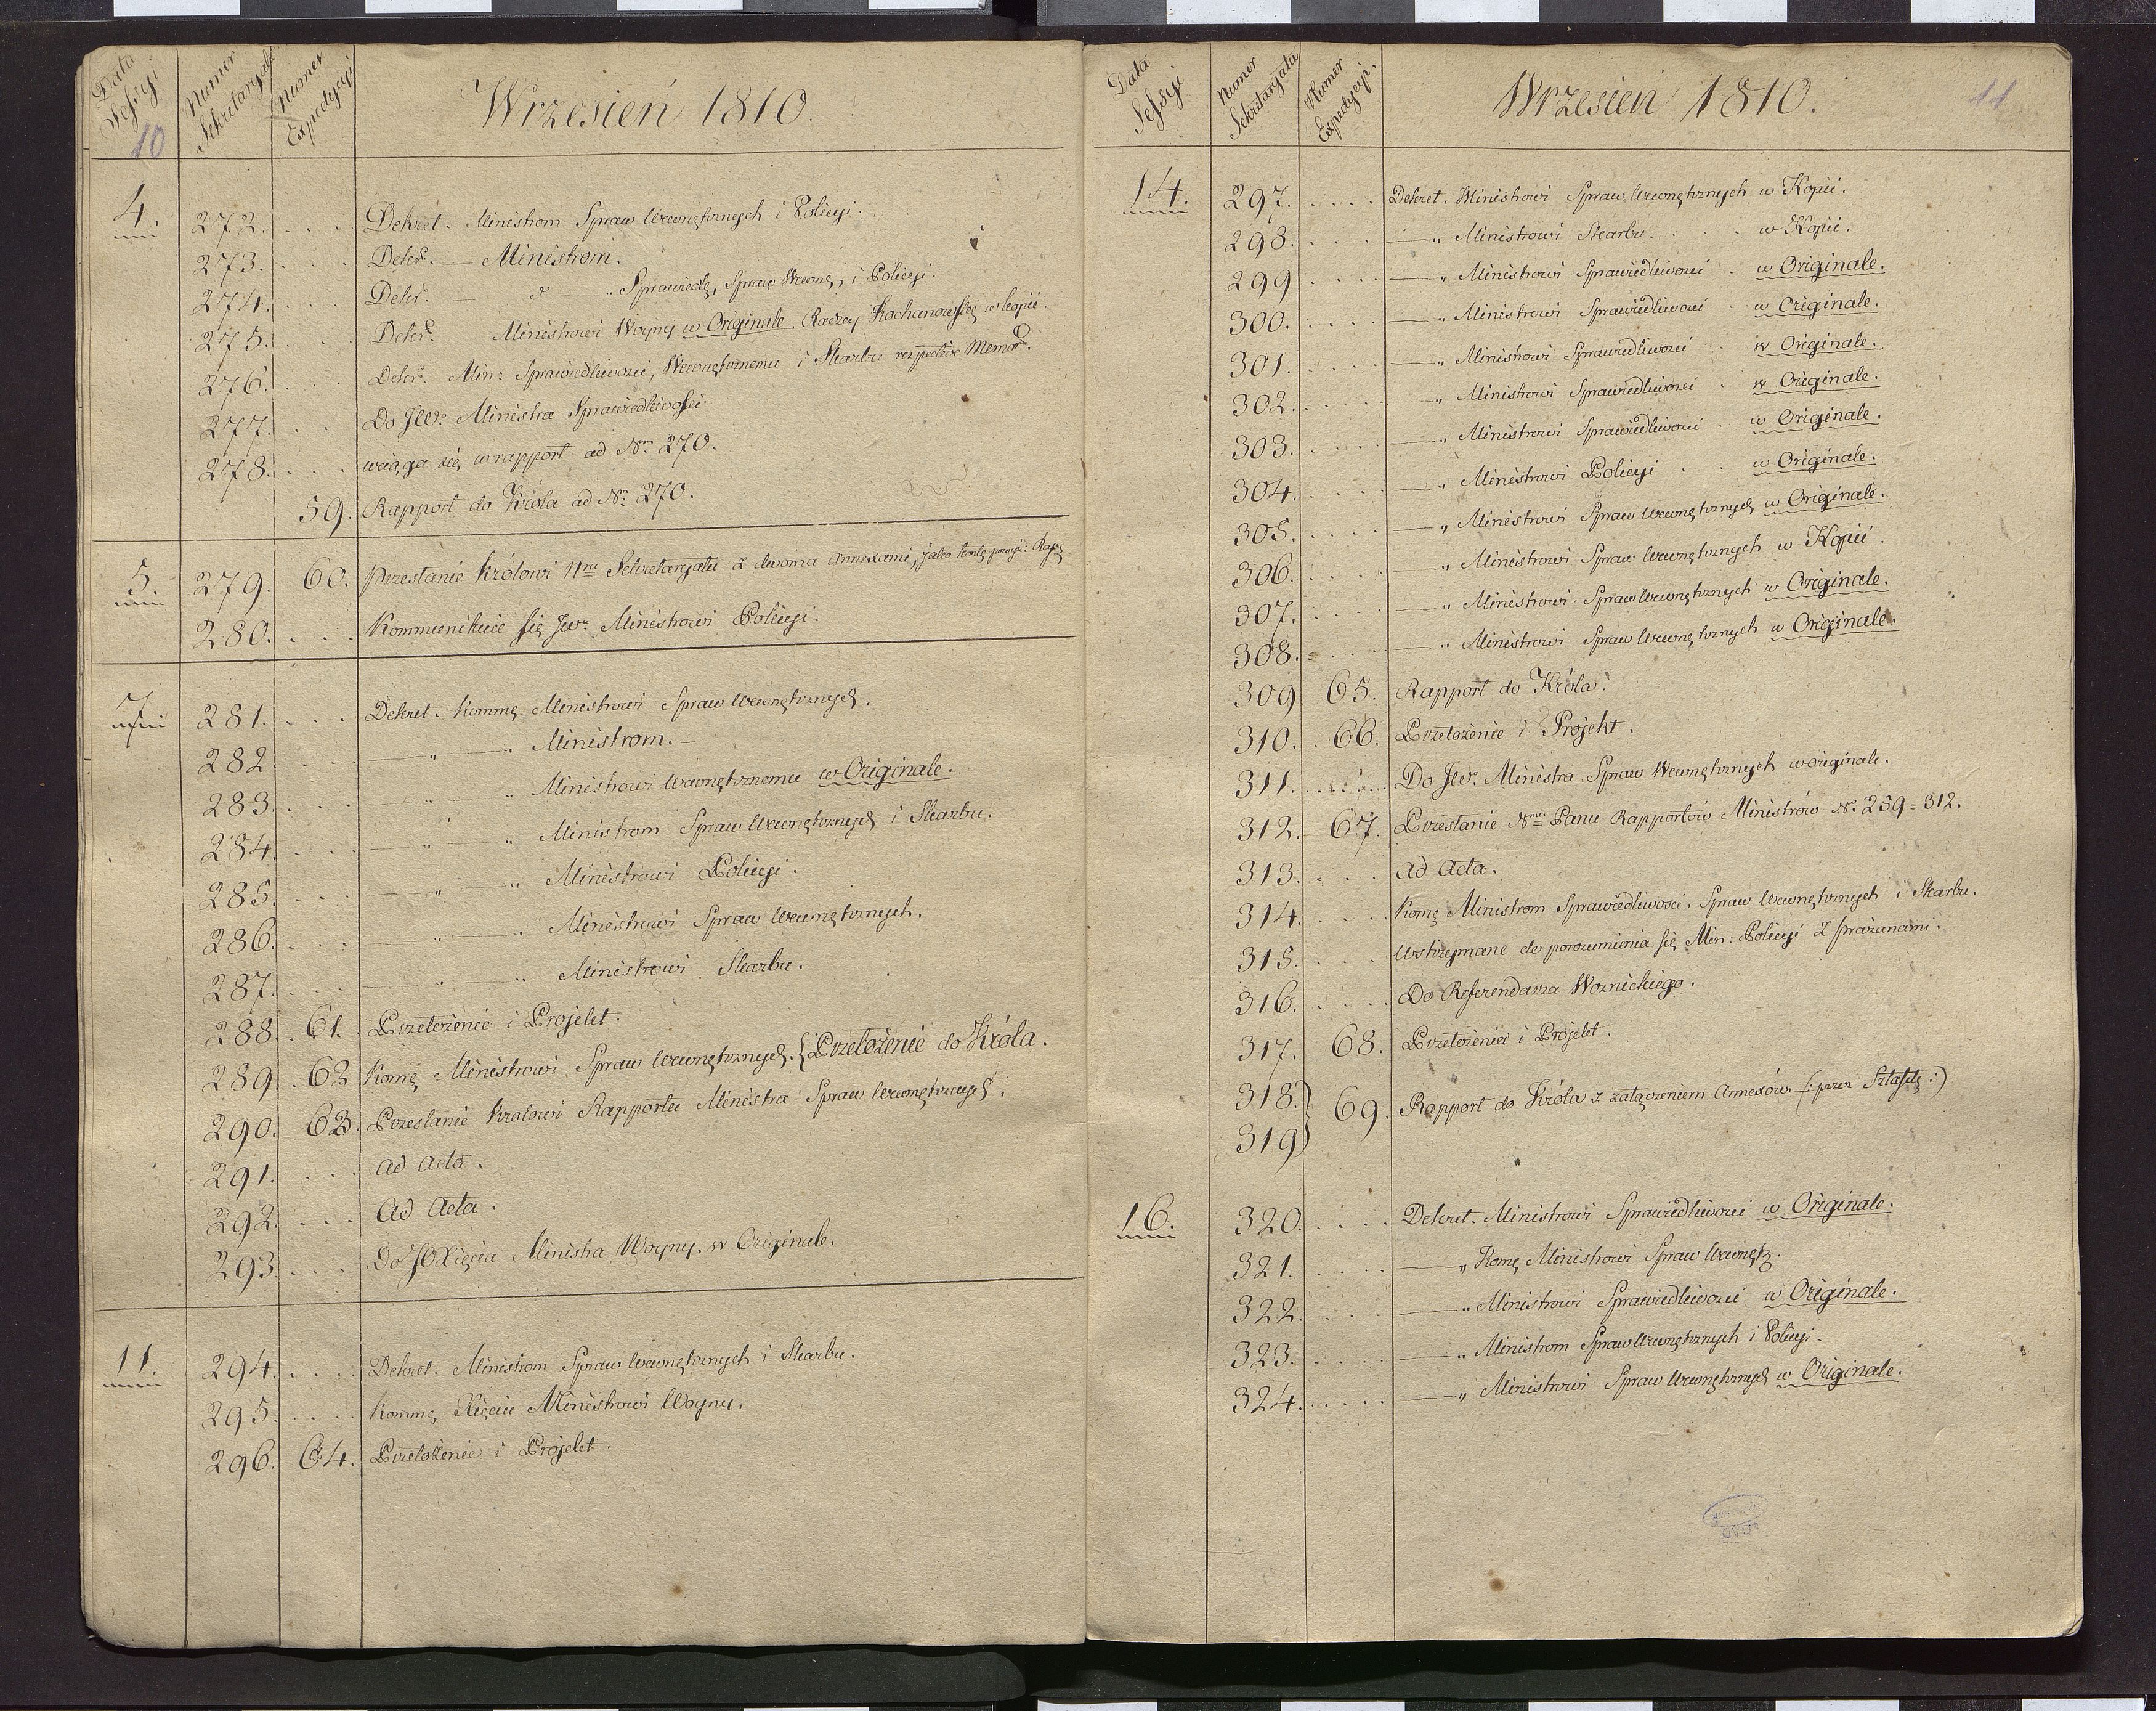 Data Sessyi
Numer Sekretaryatu
Numer Expedycyi
Wrzesień 1810.
10
4. 272. .... Dekret. Ministrom Spraw Wewnętrznych i Policyi.
273. .... Dekr. — Ministrom.
274. .... Dekr. — " Sprawiedę, Spraw Wewnę, i Policyi.
275. .... Dekr. Ministrowi Woyny w Originale Radzcy Kochanowskę w kopii.
276. .... Dekr. Min: Sprawiedliwosci, Wewnętrznemu i Skarbu respective Memor.
277. .... Do JW. Ministra Sprawiedliwości.
278. .... wciąga się w rapport ad Nr. 270.
59. Rapport do Króla ad Nr. 270.
5. 279. 60. Przesłanie Królowi Nru Sekretaryatu z dwoma Annexami, jako
280. .... Kommunikuie się JW. Ministrowi Policyi.
7. 281. .... Dekret. Kommę Ministrowi Spraw Wewnętrznych.
282. .... — " — " Ministrom. —
283. .... — " — " Ministrowi Wewnętrznemu w Originale.
284. .... — " — " Ministrom Spraw Wewnętrznych i Skarbu.
285. .... — " — " Ministrowi Policyi.
286. .... — " — " Ministrowi Spraw Wewnętrznych.
287. .... — " — " Ministrowi Skarbu.
288. 61. Przełożenie i Projekt.
289. 62 Komę Ministrowi Spraw Wewnętrznych. { Przełożenie do Króla.
290. 63. Przesłanie Krolowi Rapportu Ministra Spraw Wewnętrznych.
291. .... ad Acta.
292. .... Ad Acta.
293. .... Do JOXięcia Ministra Woyny. w Originale.
11. 294. .... Dekret. Ministrom Spraw Wewnętrznych i Skarbu.
295. .... Kommę Xięciu Ministrowi Woyny.
296. 64. Przełożenie i Projekt.
Data Sessyi
Numer Sekretaryatu
Numer Expedycyi.
Wrzesień 1810.
11
14. 297. .... Dekret. Ministrowi Spraw Wewnętrznych w Kopii.
298. .... — " Ministrowi Skarbu. . . w Kopii.
299 .... — " Ministrowi Sprawiedliwosci . w Originale.
300. .... — " Ministrowi Sprawiedliwosci . w Originale.
301. .... — " Ministrowi Sprawiedliwosci . w Originale.
302. .... — " Ministrowi Sprawiedliwosci . w Originale.
303. .... — " Ministrowi Sprawiedliwosci . w Originale.
304. .... — " Ministrowi Policyi . . w Originale.
305. .... — " Ministrowi Spraw Wewnętrznych w Originale.
306. .... — " Ministrowi Spraw Wewnętrznych w Kopii.
307. .... — " Ministrowi Spraw Wewnętrznych w Originale.
308. .... — " Ministrowi Spraw Wewnętrznych w Originale.
309. 65. Rapport do Króla.
310. 66. Przełożenie i Projekt.
311. .... Do JW. Ministra Spraw Wewnętrznych w originale.
312. 67. Przesłanie Panu Rapportów Ministrów Nr. 259 = 312.
313. .... ad Acta.
314. .... Komę Ministrom Sprawiedliwosci, Spraw Wewnętrznych i Skarbu.
315. .... Wstrzymane do porozumienia się Min: Policyi z prażanami.
316. .... Do Referendarza Woznickiego.
317. 68. Przełożenie i Projekt.
318. } 69. Rapport do Króla z załączeniem Annexów (: przez Sztafetę :)
319 }
16. 320. .... Dekret. Ministrowi Sprawiedliwosci w Originale.
321. .... — " Komę Ministrowi Spraw Wewnętz.
322. .... — " Ministrowi Sprawiedliwosci w Originale.
323. .... — " Ministrom Spraw Wewnętrznych i Policyi.
324. .... — " Ministrowi Spraw Wewnętrznych w Originale.